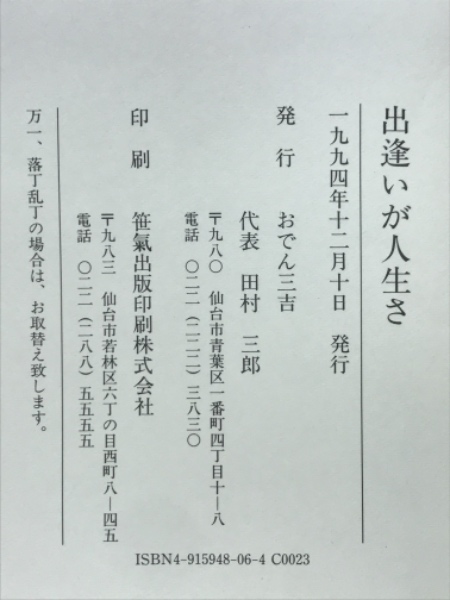 出逢いが人生さ
一九九四年十二月十日　発行
発　行　おでん三吉
代表　田村　三郎
〒九八〇　仙台市青葉区一番町四丁目十―八
電話　〇二二（二二二）三八三〇
印　刷　笹氣出版印刷株式会社
〒九八三　仙台市若林区六丁の目西町八―四五
電話　〇二二（二八八）五五五五
万一、落丁乱丁の場合は、お取替え致します。
ISBN4-915948-06-4 C0023